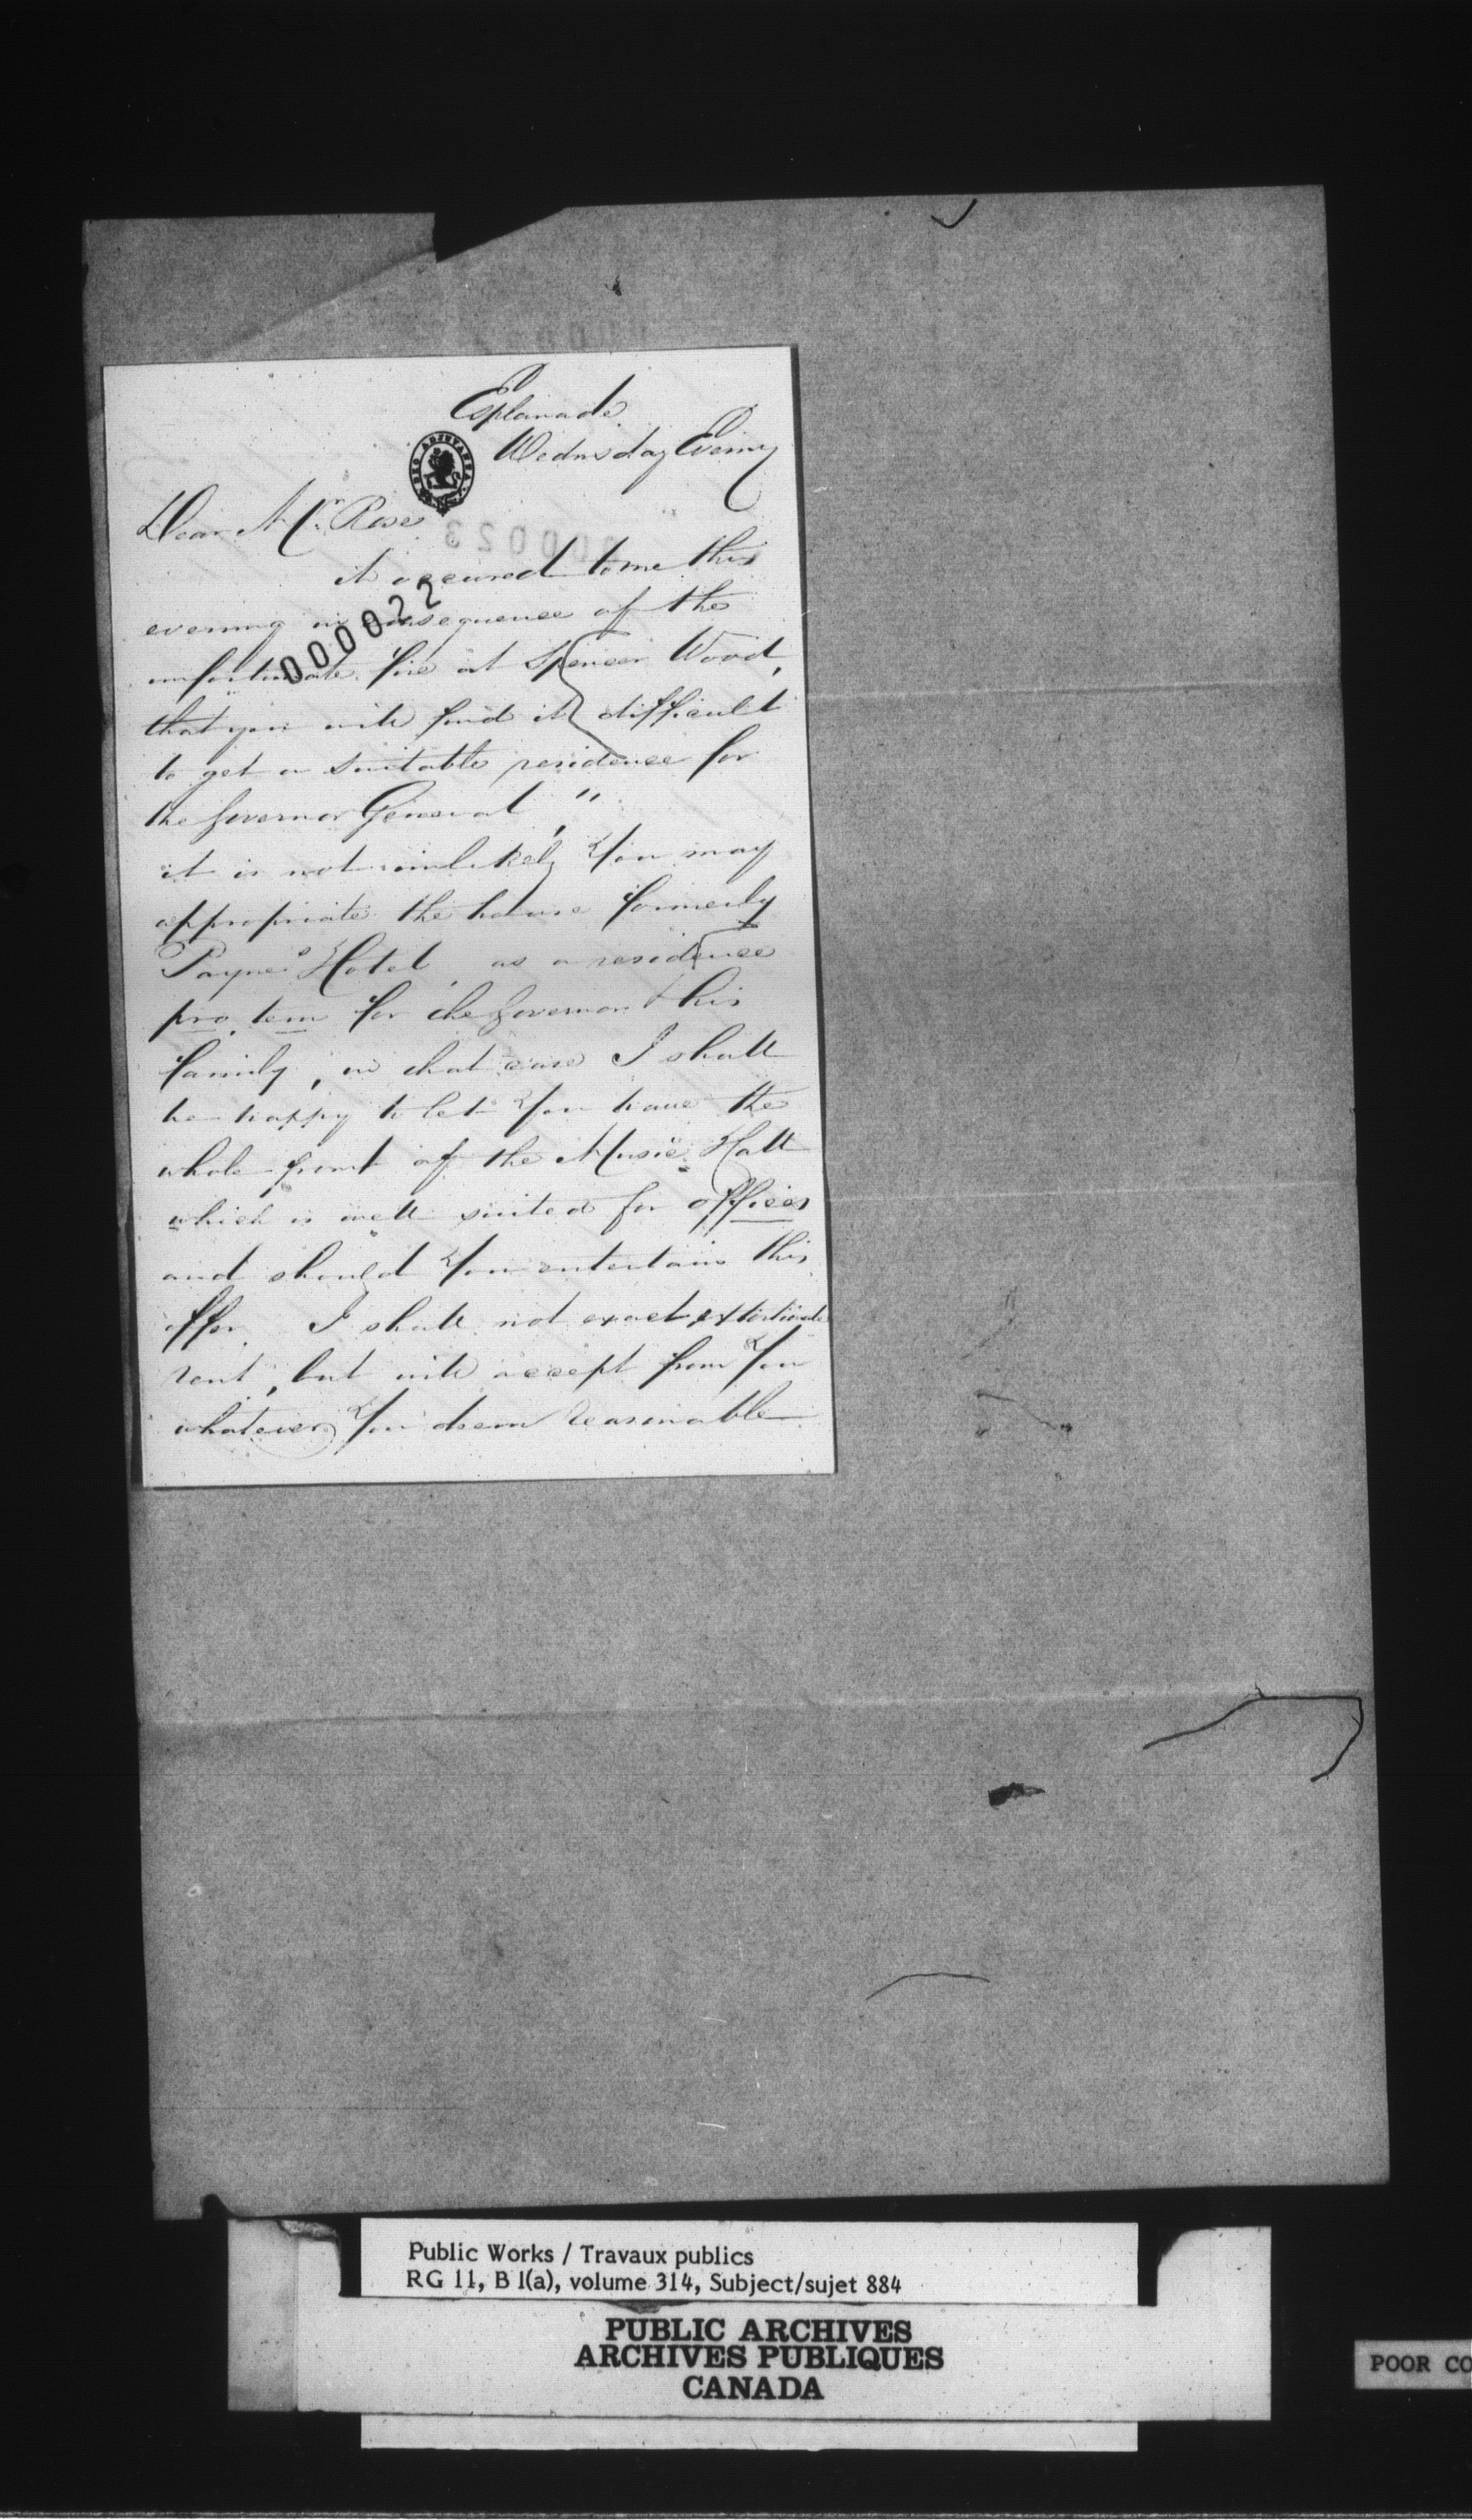 Esplanade
Wednsday Evening
Dear Mr. Rose
it occured to me this
evening in consequence of the
unfortunate fire at Spencer Wood,
that you will find it difficult
to get a suitable residence for
the Governor General, "
it is not unlikely You may
appropriate the house formerly
Payne's Hotel, as a residence
pro. tem for the Governor & his
family, in that case I shall
be happy to let You have the
whole front of the Music Hall
which is well suited for offices
and should You entertain this
offer. I shall not exact extortionate
rent, but will accept from You
whatever You deem reasonable
000022
000023
Public Works / Travaux publics
RG 11, B 1(a), volume 314, Subject/sujet 884
PUBLIC ARCHIVES
ARCHIVES PUBLIQUES
CANADA
POOR CO